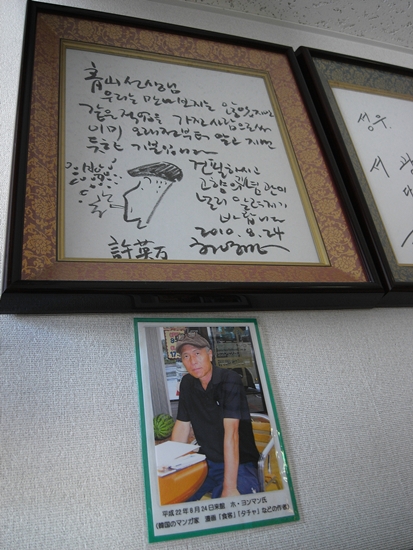 靑山선생님
우리는 만나보지는 않았지만
같은 직업을 가진 사람으로써
이미 오래전부터 알고 지낸
듯한 기분입니다
건필하시고
고향의 기념관이
널리 알려지기
바랍니다
2010. 8. 24
許英万
성우
서
平成22年8月24日来館 ホ・ヨンマン氏
(韓国のマンガ家 漫画「食客」「タチャ」などの作者)